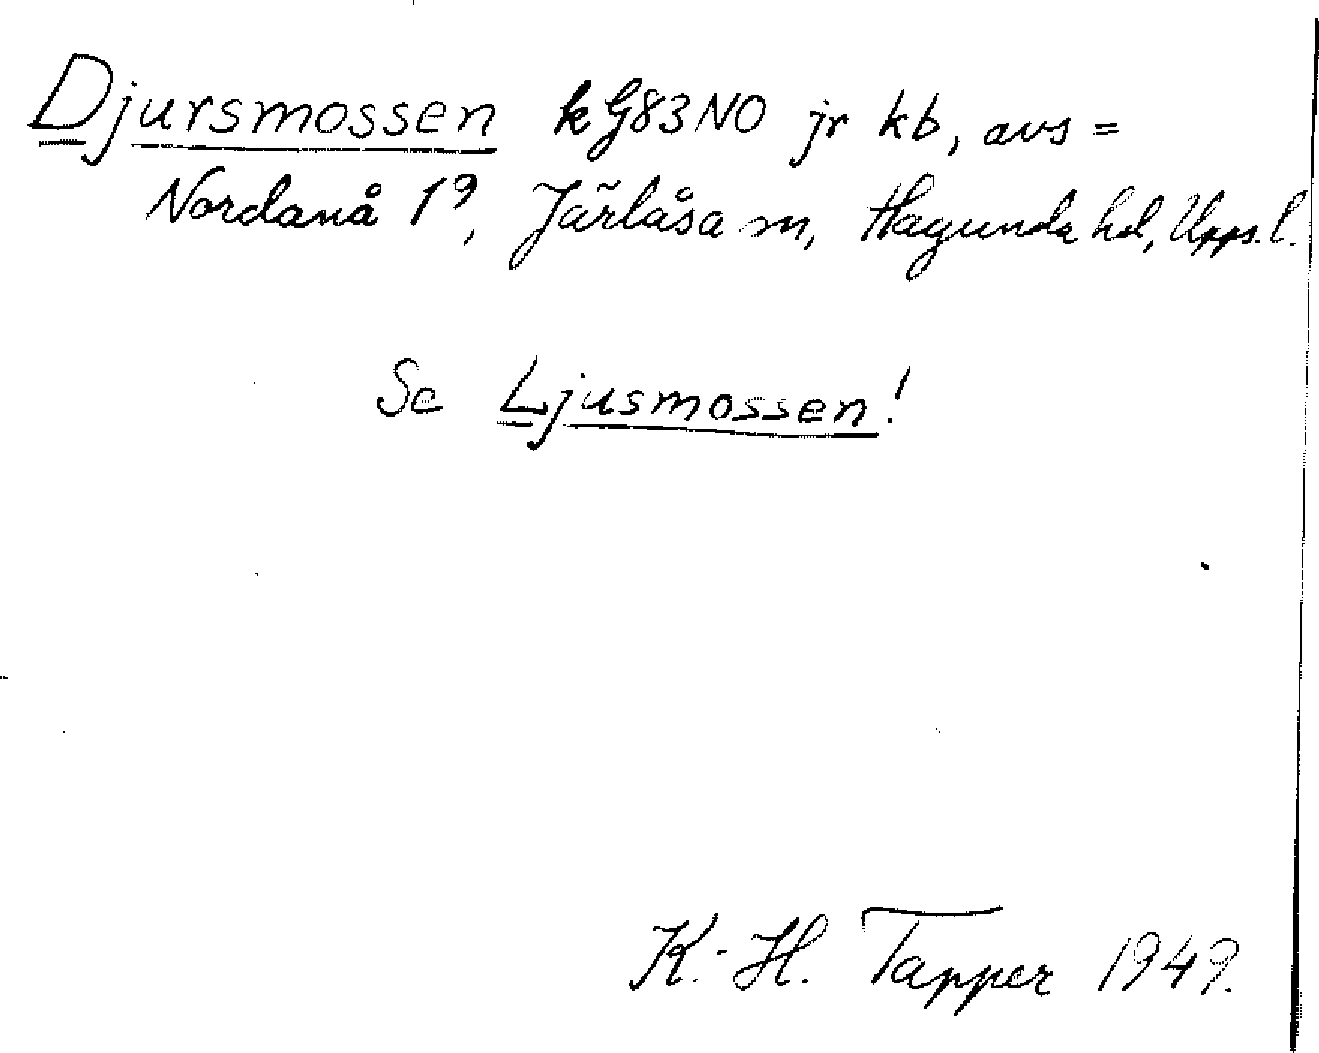 Djursmossen kG83NO jr kb, avs =
Nordanå 1⁹, Järlåsa sn, Hagunda hd, Upps. l.
Se Ljusmossen!
K.-H. Tapper 1949.